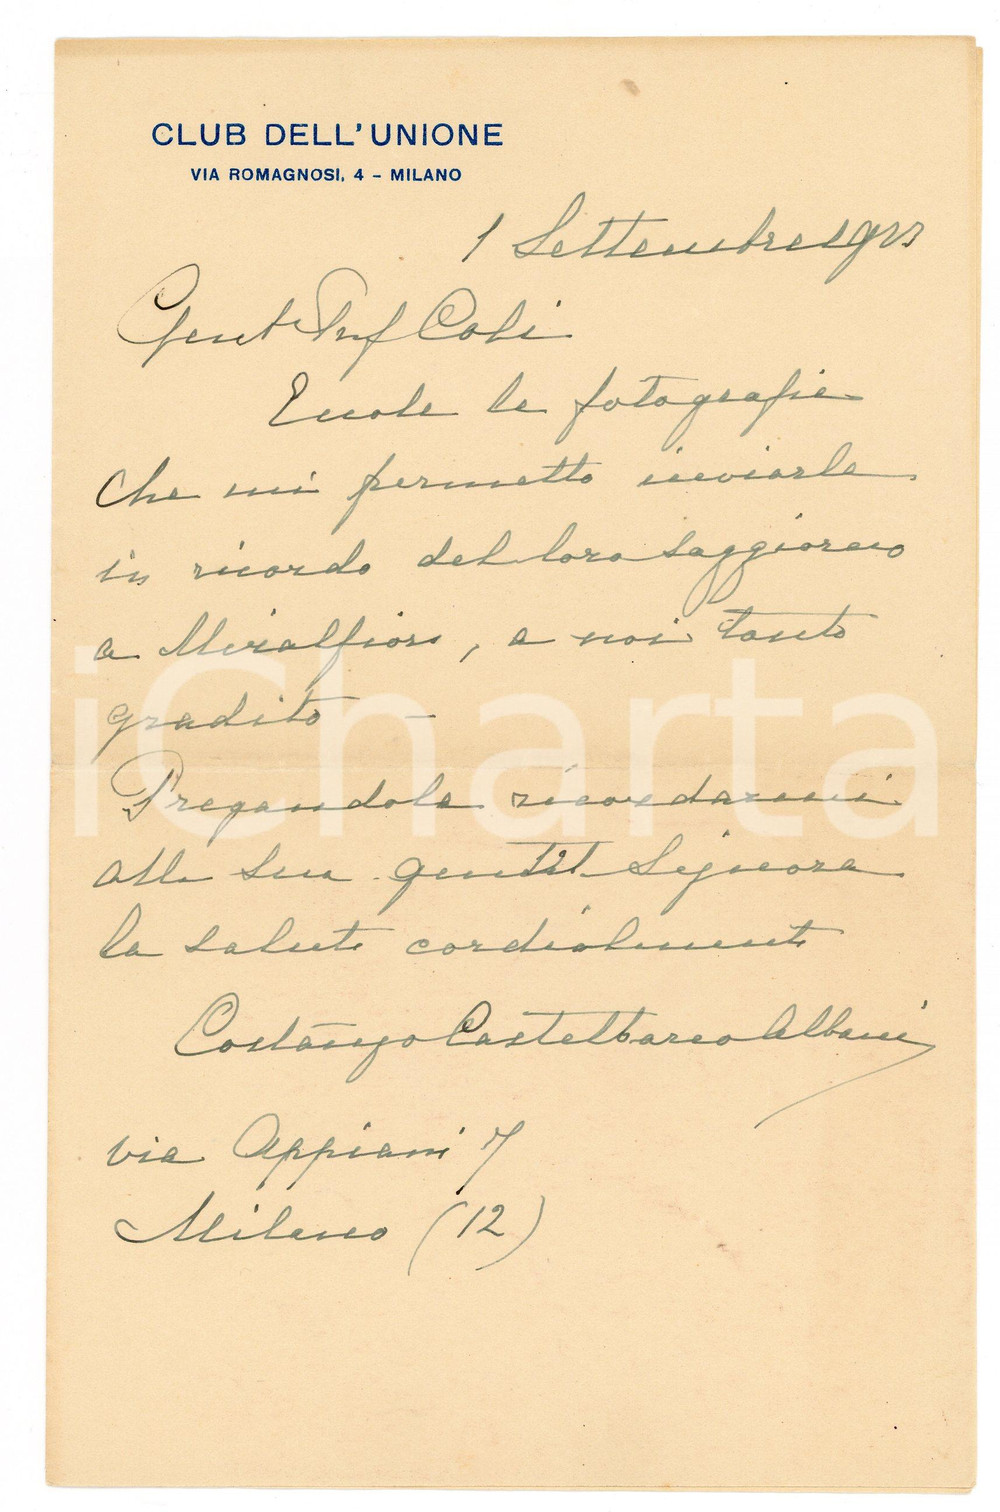 CLUB DELL'UNIONE
VIA ROMAGNOSI, 4 - MILANO
1 Settembre
Gent Prf Cobi
Eccole le fotografie
che mi permetto inviarle
in ricordo del loro soggiorno
a Miralfiore, a noi tanto
gradito -
Pregandola ricordarmi
alla sua gentil Signora
la saluto cordialmente
Costanzo Castelbarco Albani
via Appiani 7
Milano (12)
iCharta